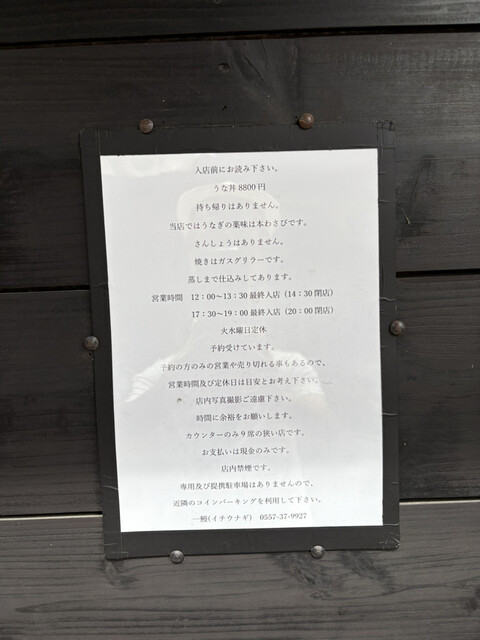 入店前にお読み下さい。
うな丼 8800 円
持ち帰りはありません。
当店ではうなぎの薬味は本わさびです。
さんしょうはありません。
焼きはガスグリラーです。
蒸しまで仕込みしてあります。
営業時間　12：00～13：30 最終入店（14：30 閉店）
17：30～19：00 最終入店（20：00 閉店）
火水曜日定休
予約受けています。
予約の方のみの営業や売り切れる事もあるので、
営業時間及び定休日は目安とお考え下さい。
店内写真撮影ご遠慮下さい。
時間に余裕をお願いします。
カウンターのみ９席の狭い店です。
お支払いは現金のみです。
店内禁煙です。
専用及び提携駐車場はありませんので、
近隣のコインパーキングを利用して下さい。
一鰻(イチウナギ)　0557-37-9927